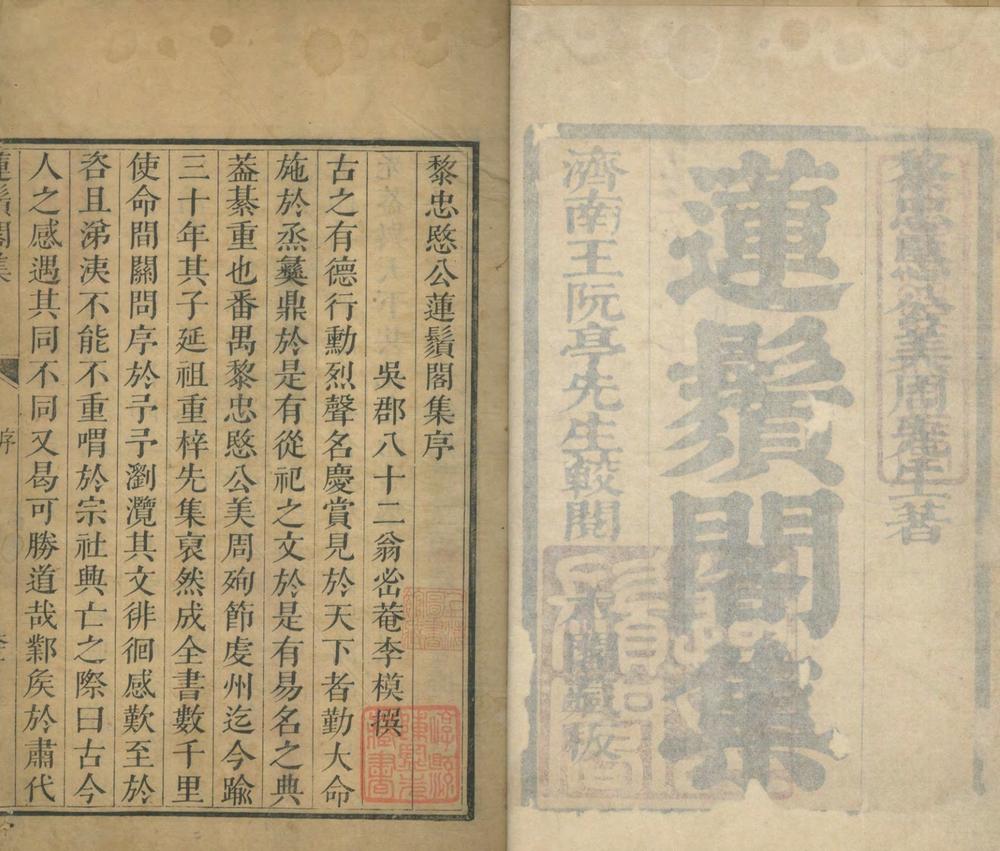 黎忠愍公美周先生著
蓮鬚閣集
濟南王阮亭先生較閱
黎忠愍公蓮鬚閣集序
吳郡八十二翁峦菴李模撰
古之有德行勳烈聲名慶賞見於天下者勤大命
施於烝彝鼎於是有從祀之文於是有易名之典
葢綦重也番禺黎忠愍公美周殉節虔州迄今踰
三十年其子延祖重梓先集裒然成全書數千里
使命間關問序於予予瀏灠其文徘徊感歎至於
咨且涕洟不能不重喟於宗社興亡之際曰古今
人之感遇其同不同又曷可勝道哉鄴矦於肅代
蓮鬚閣集
序